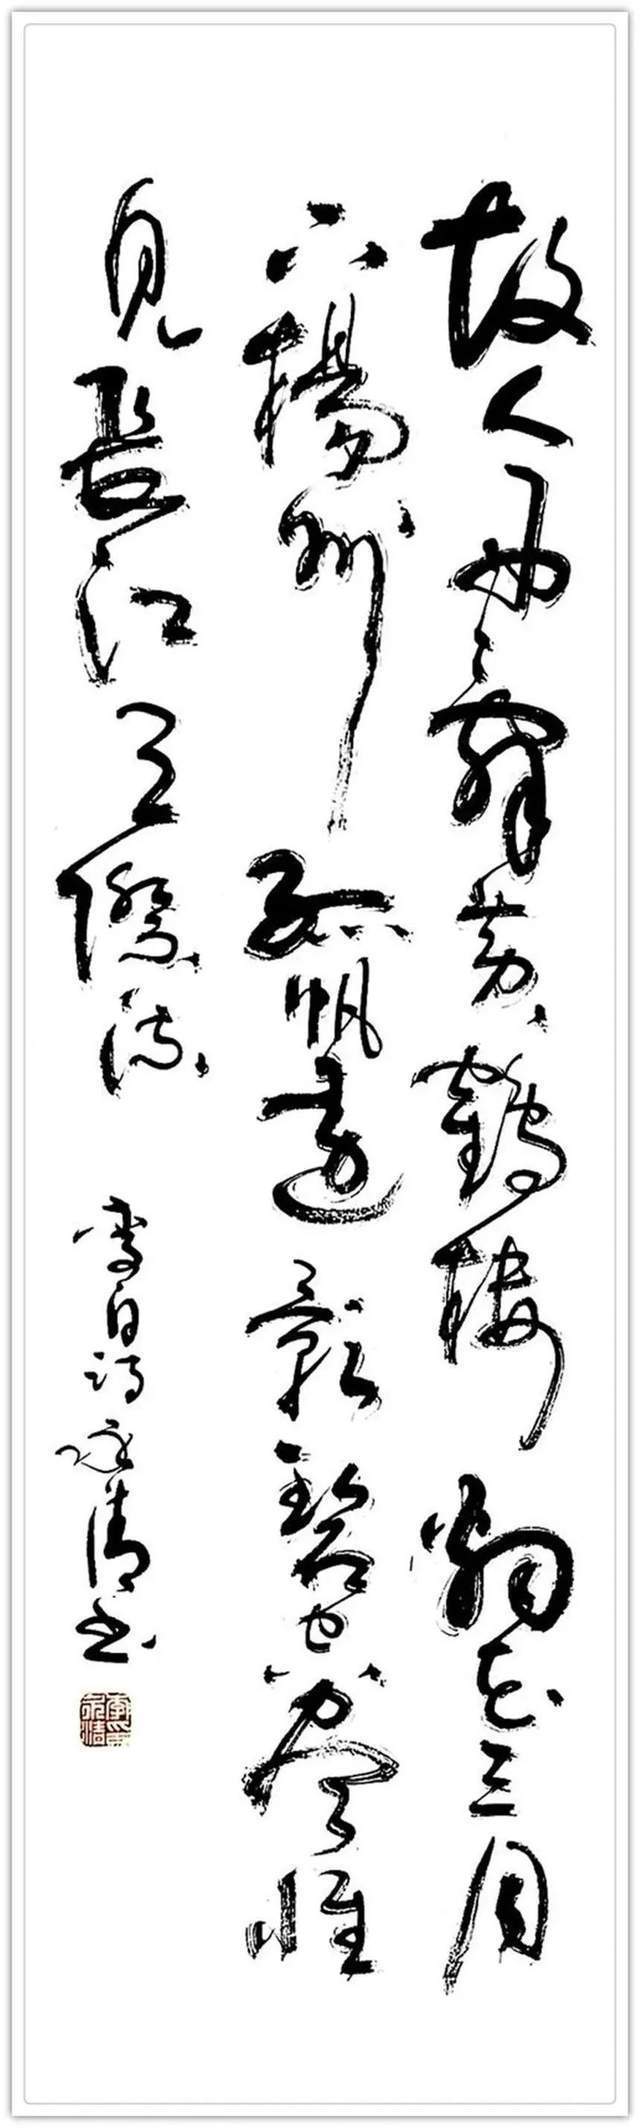 故人西辭黃鶴樓烟花三月
下楊州孤帆遠影碧空盡惟
見長江天際流
李白詩永清书